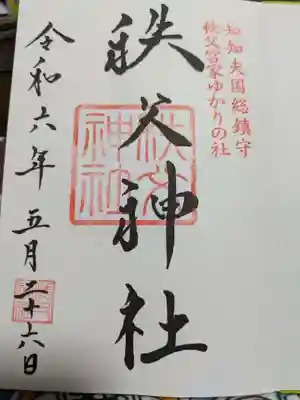 知知夫国総鎮守
秩父宮家ゆかりの社
秩父神社
秩父
神社
令和六年 五月二十六日